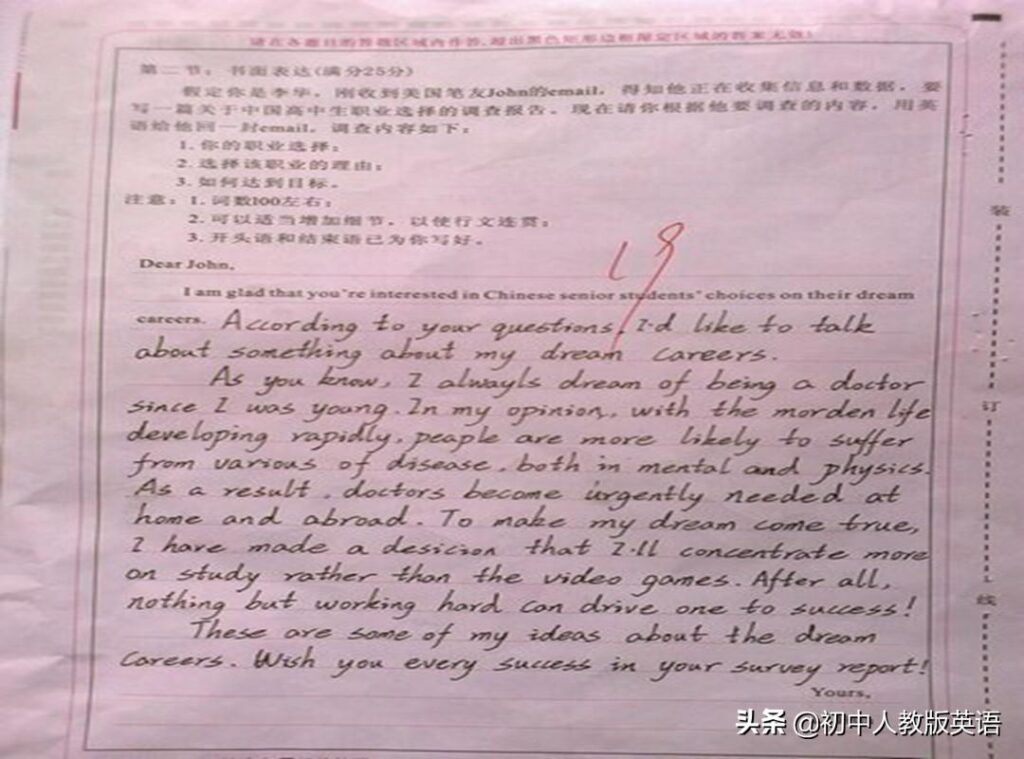 请在各题目的答题区域内作答,超出黑色矩形边框限定区域的答案无效!
第二节:书面表达(满分25分)
假定你是李华,刚收到美国笔友John的email,得知他正在收集信息和数据,要
写一篇关于中国高中生职业选择的调查报告。现在请你根据他要调查的内容,用英
语给他回一封email,调查内容如下:
1.你的职业选择;
2.选择该职业的理由;
3.如何达到目标。
注意:1.词数100左右;
2.可以适当增加细节,以使行文连贯;
3.开头语和结束语已为你写好。
19
Dear John,
I am glad that you're interested in Chinese senior students' choices on their dream
careers. According to your questions, I'd like to talk
about something about my dream careers.
As you know, I alwayls dream of being a doctor
since I was young. In my opinion, with the morden life
developing rapidly, peaple are more likely to suffer
from various of disease, both in mental and physics.
As a result, doctors become urgently needed at
home and abroad. To make my dream come true,
I have made a desicion that I'll concentrate more
on study rather than the video games. After all,
nothing but working hard can drive one to success!
These are some of my ideas about the dream
careers. Wish you every success in your survey report!
Yours,
装
订
线
头条 @初中人教版英语